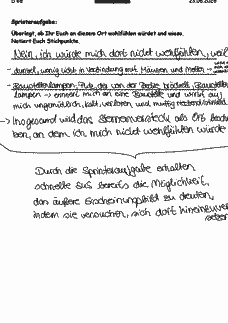 23.05.2023
Sprinteraufgabe:
Überlegt, ob Ihr Euch an diesem Ort wohlfühlen würdet und wieso.
Notiert Euch Stichpunkte.
Nein, ich würde mich dort nicht wohlfühlen, weil
- dunkel, wenig Licht in Verbindung mit Mäusen und Motten
- Baustellenlampen, Putz der von der Decke bröckelt, Baustellen-
lampen → erinnert mich an eine Baustelle und wirkt auf
mich ungemütlich, kalt, verloren, und muffig riechend
→ Insgesamt wird das als Ort beschrie-
ben, an dem ich mich nicht wohlfühlen würde
Durch die Sprinteraufgabe erhalten
schnelle SuS bereits die Möglichkeit,
das äußere Erscheinungsbild zu deuten,
indem sie versuchen, sich dort hineinzuver-
setzen